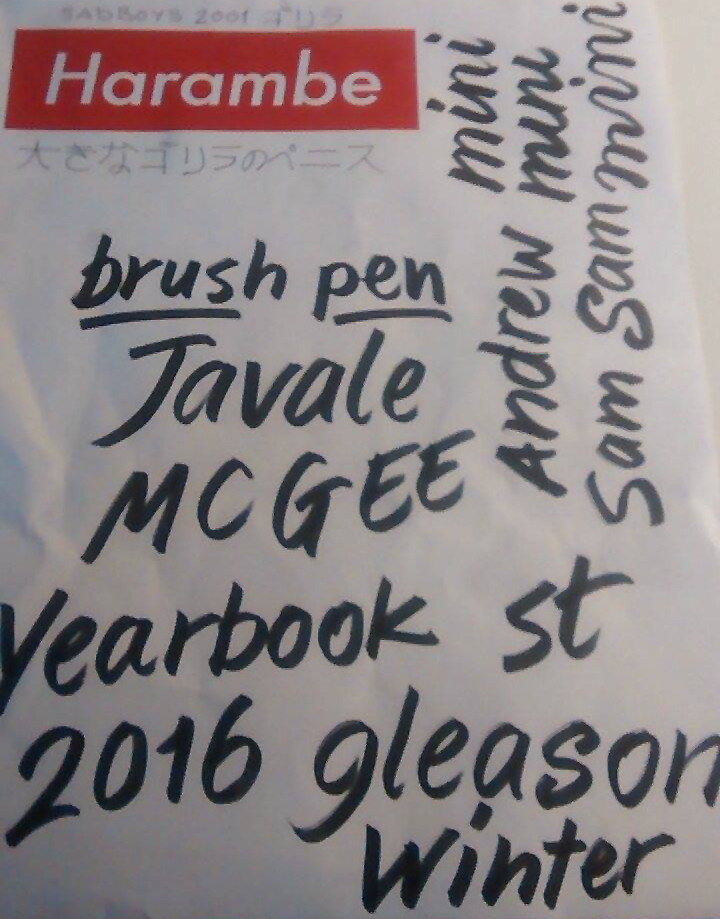 SADBOYS 2001 ゴリラ
Harambe
大きなゴリラのペニス
brush pen
Javale
MCGEE
yearbook st
2016 gleason
winter
mini
Andrew mini
Sam Sam mini